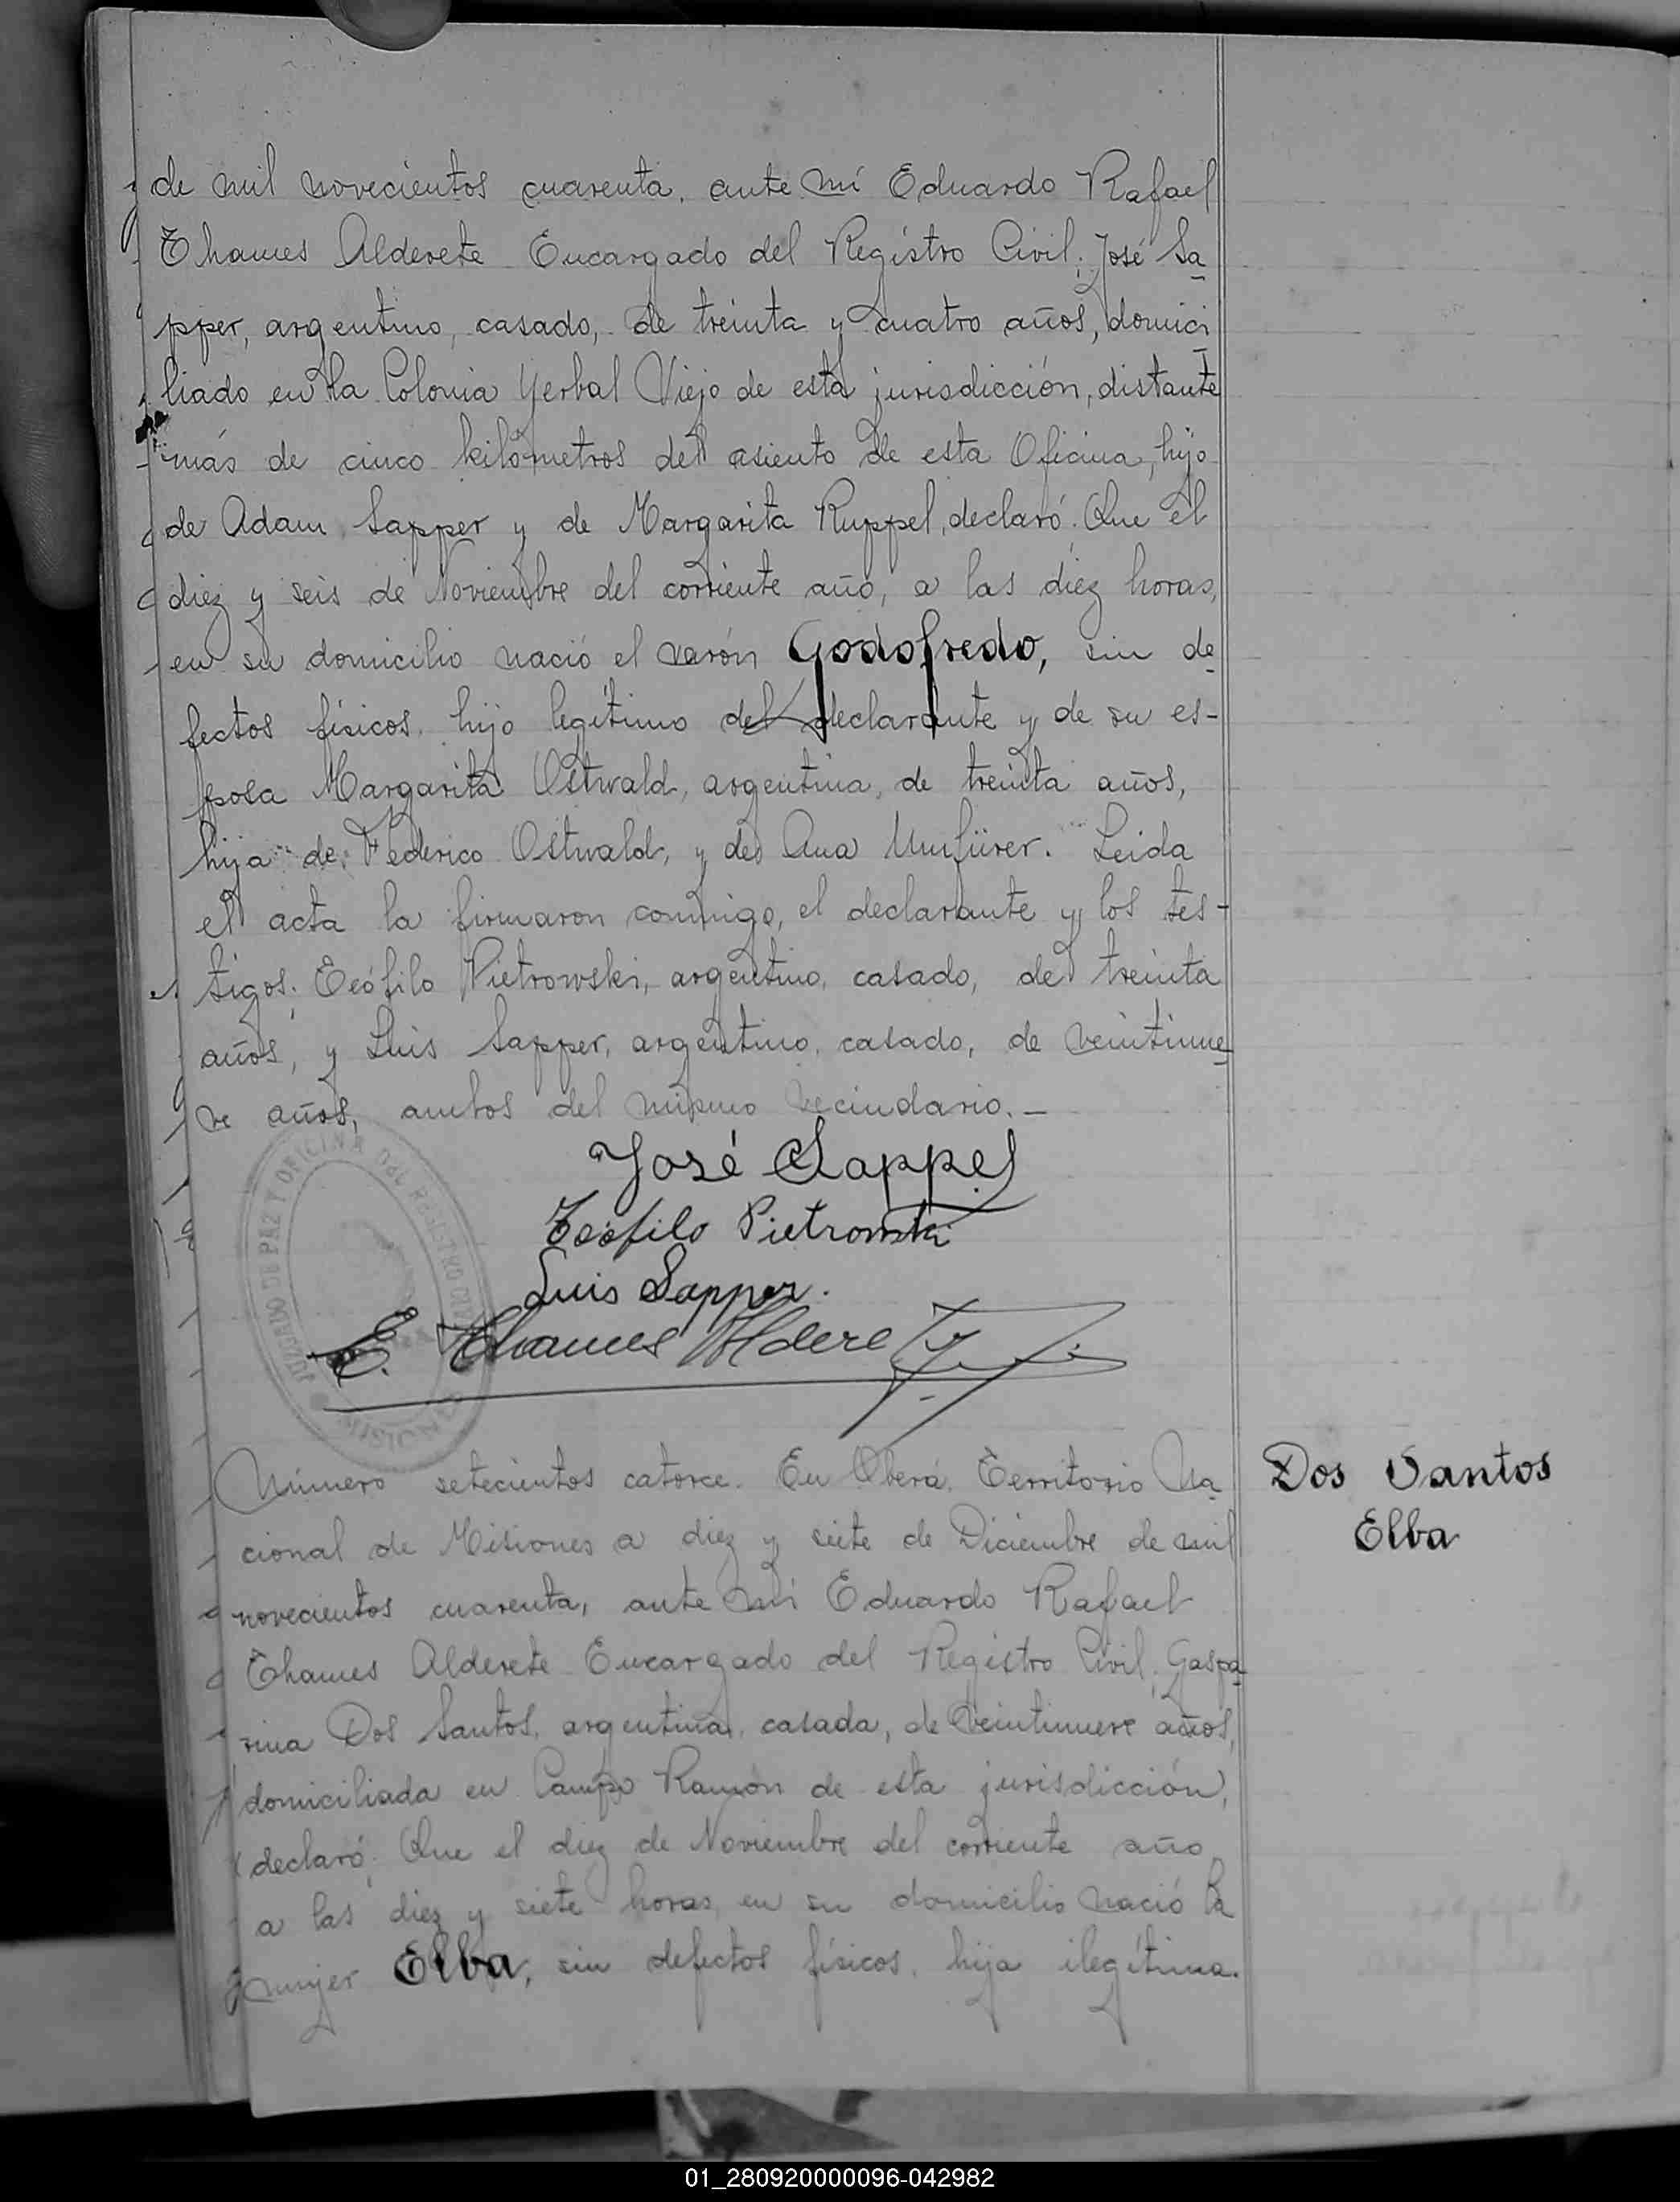 de mil novecientos cuarenta, ante mí Eduardo Rafael
Thames Alderete Encargado del Registro Civil; José Sa
pper, argentino, casado, de treinta y cuatro años, domici
liado en la Colonia Yerbal Viejo de esta jurisdicción, distante
más de cinco kilómetros del asiento de esta Oficina, hijo
de Adam Sapper y de Margarita Ruppel, declaró: Que el
diez y seis de Noviembre del corriente año, a las diez horas,
en su domicilio nació el varón Godofredo, sin de
fectos físicos, hijo legítimo del declarante y de su es-
posa Margarita Ostwald, argentina, de treinta años,
hija de Federico Ostwald, y de Ana Umfürer. Leida
el acta la firmaron conmigo, el declarante y los tes-
tigos: Teófilo Pietrowski, argentino, casado, de treinta
años, y Luis Sapper, argentino, casado, de veintinue
ve años, ambos del mismo vecindario.—
José Sapper
Teófilo Pietrowski
Luis Sapper.
E. Thames Alderete
JUZGADO DE PAZ Y OFICINA DEL REGISTRO CIVIL
Dos Santos
Elba
Número setecientos catorce. En Oberá, Territorio Na
cional de Misiones a diez y siete de Diciembre de mil
novecientos cuarenta, ante mí Eduardo Rafael
Thames Alderete Encargado del Registro Civil; Gaspa
rina Dos Santos, argentina, casada, de veintinueve años,
domiciliada en Campo Ramón de esta jurisdicción,
declaró: Que el diez de Noviembre del corriente año
a las diez y siete horas, en su domicilio nació la
mujer Elba, sin defectos físicos, hija ilegítima.
01_280920000096-042982